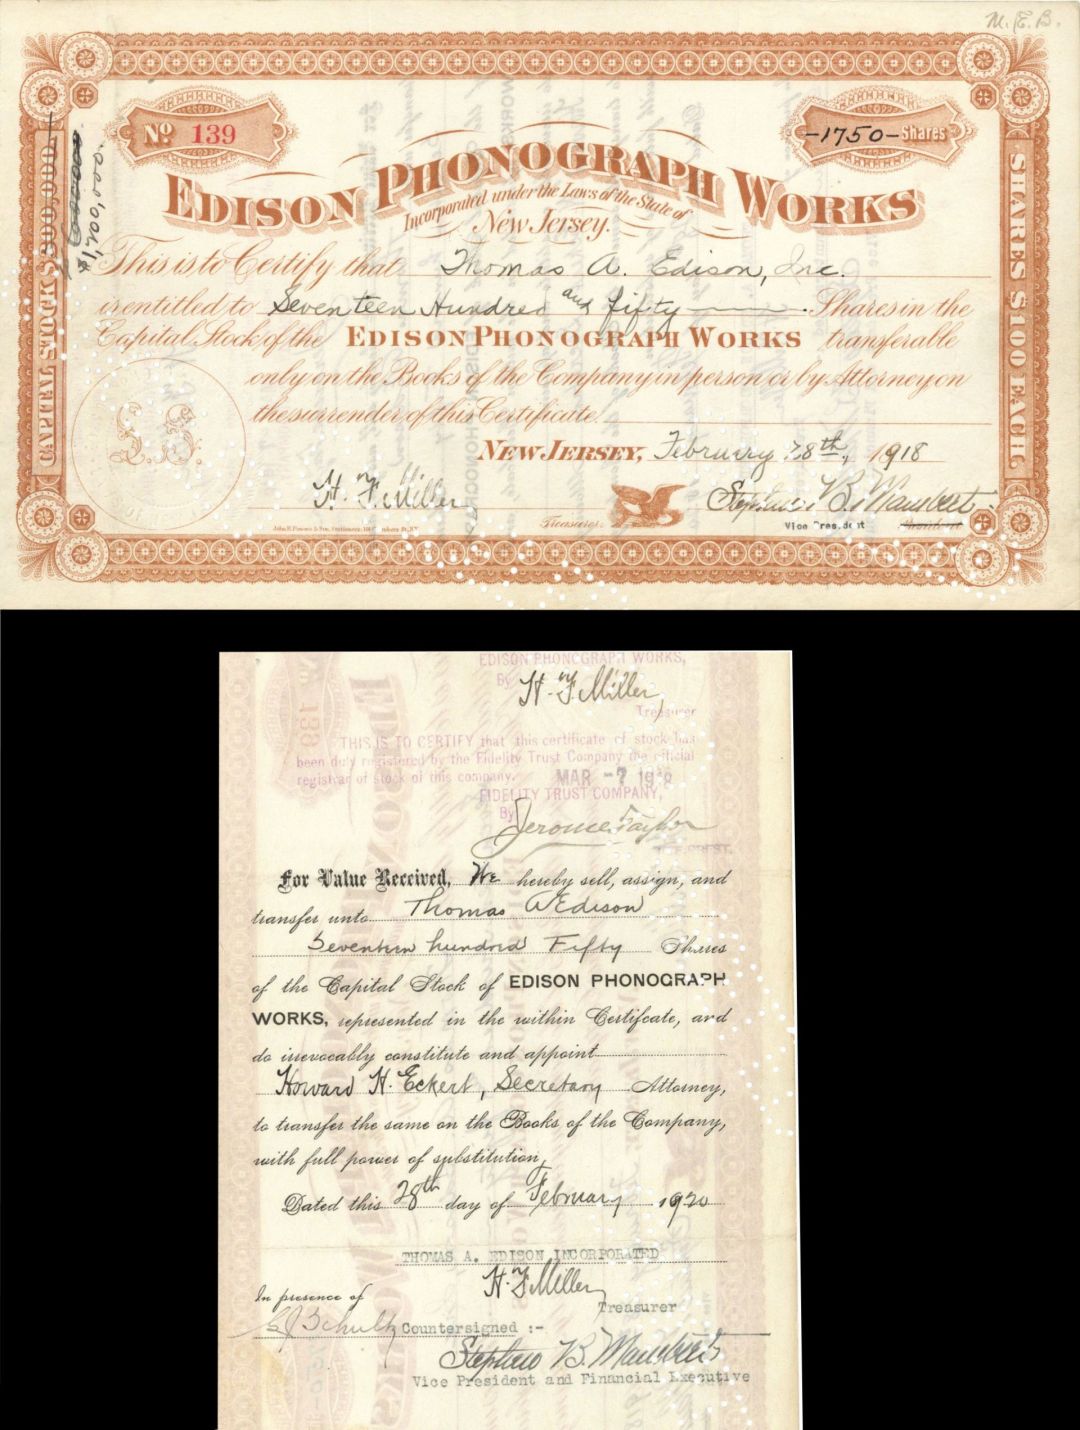 M. E. B.
No 139
-1750- Shares
EDISON PHONOGRAPH WORKS
Incorporated under the Laws of the State of
New Jersey.
CAPITAL STOCK $600,000.
SHARES $100 EACH.
This is to Certify that Thomas A. Edison, Inc.
is entitled to Seventeen Hundred and fifty Shares in the
Capital Stock of the EDISON PHONOGRAPH WORKS transferable
only on the Books of the Company in person or by Attorney on
the surrender of this Certificate.
L.S.
NEW JERSEY, February 28th, 1918
H. F. Miller
Treasurer.
Stephen B. Mambert
Vice President
EDISON PHONOGRAPH WORKS,
By H. F. Miller,
Treasurer
THIS IS TO CERTIFY that this certificate of stock has
been duly registered by the Fidelity Trust Company the official
registrar of stock of this company.
MAR -7
FIDELITY TRUST COMPANY,
By Jerome Taylor
For Value Received, We hereby sell, assign, and
transfer unto Thomas A Edison
Seventeen hundred Fifty Shares
of the Capital Stock of EDISON PHONOGRAPH
WORKS, represented in the within Certifcate, and
do irrevocably constitute and appoint
Howard H. Eckert, Secretary Attorney,
to transfer the same on the Books of the Company,
with full power of substitution,
Dated this 28th day of February 1920
THOMAS A. EDISON INCORPORATED
H. F. Miller
Treasurer
In presence of
Schultz Countersigned :-
Stephen B. Mambert
Vice President and Financial Executive